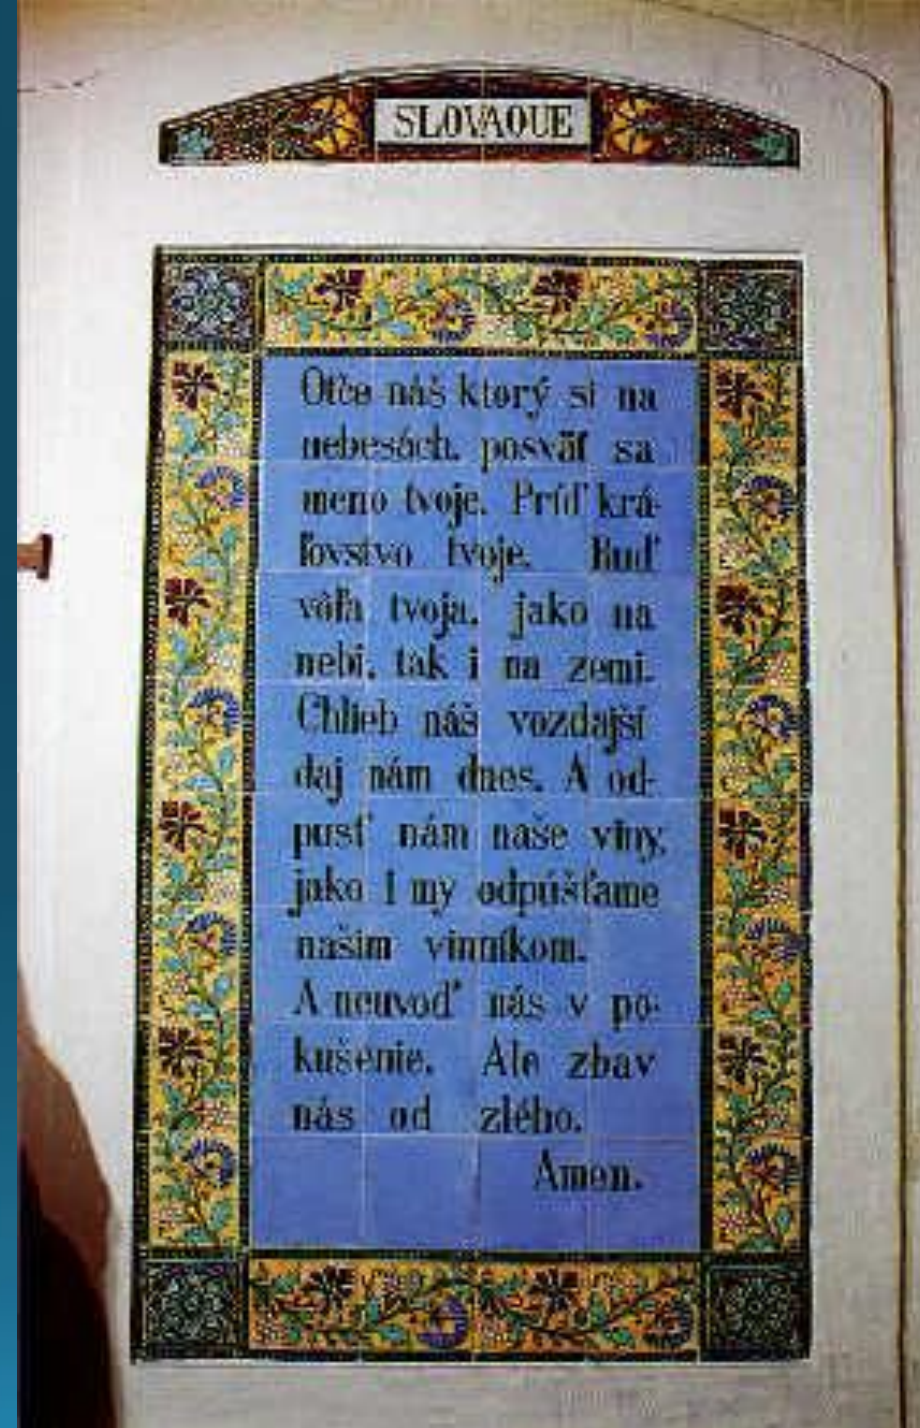 SLOVAQUE
Otče náš ktorý si na
nebesách, posväť sa
meno tvoje. Príď krá-
ľovstvo tvoje. Buď
vôľa tvoja, jako na
nebi, tak i na zemi.
Chlieb náš vozdajší
daj nám dnes. A od-
pusť nám naše viny,
jako i my odpúšťame
našim vinníkom.
A neuvoď nás v po-
kušenie. Ale zbav
nás od zlého.
Amen.